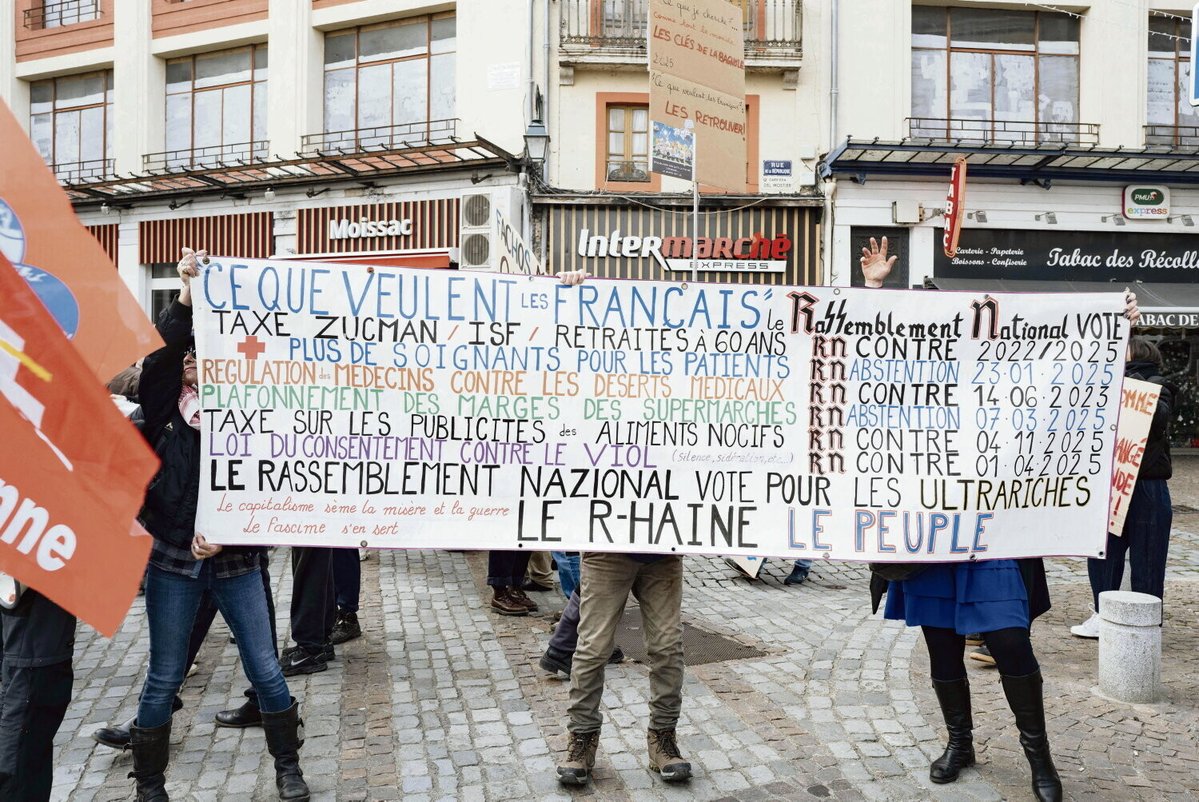 Ce que je cherche?
comme tout le monde
LES CLÉS DE LA BAGNOLE
2025
Ce que veulent les français?
LES RETROUVER!
RUE
DE LA RÉPUBLIQUE
PMU
express
TABAC
MOISSAC
INTERMARCHÉ
EXPRESS
FACHOS
Carterie - Papeterie
Boissons - Confiserie
Tabac des Récolle
TABAC DE
CE QUE VEULENT LES FRANÇAIS
le Rassemblement National VOTE
TAXE ZUCMAN / ISF / RETRAITES À 60 ANS
RN CONTRE 2022/2025
+ PLUS DE SOIGNANTS POUR LES PATIENTS
RN ABSTENTION 23·01·2025
REGULATION des MEDECINS CONTRE LES DESERTS MEDICAUX
RN CONTRE 14·06·2023
PLAFONNEMENT DES MARGES DES SUPERMARCHES
RN ABSTENTION 07·03·2025
TAXE SUR LES PUBLICITES des ALIMENTS NOCIFS
RN CONTRE 04·11·2025
LOI DU CONSENTEMENT CONTRE LE VIOL (silence, sidération, etc...)
RN CONTRE 01·04·2025
LE RASSEMBLEMENT NAZIONAL VOTE POUR LES ULTRARICHES
Le capitalisme sème la misère et la guerre
Le Fascime s'en sert
LE R-HAINE LE PEUPLE
nne
OMME